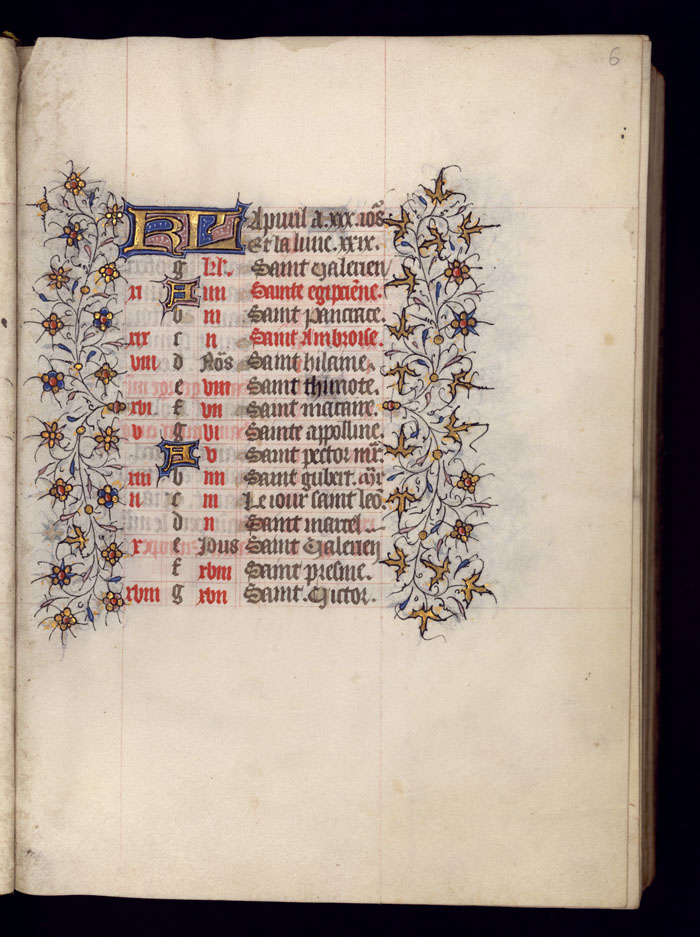 6
KL Apuril a .xxx. iors
Et la lune .xxix.
g kl. Saint Valerien
xi A iiii Sainte egipciene.
b iii Saint pancrace.
xix c ii Saint Ambroise.
viii d Nos Saint hilaine.
e viii Saint thimote.
xvi f vii Saint macaire.
v g vi Sainte appoline.
A v Saint pector mr.
xiii b iiii Saint guibert.
ii c iii Le iour saint leo.
d ii Saint marcel.
x e Idus Saint Valerien
f xviii Saint presme.
xviii g xvii Saint Victor.